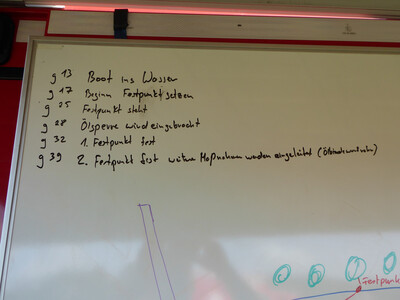 9 13 Boot ins Wasser
9 17 Beginn Festpunkt setzen
9 25 Festpunkt steht
9 28 Ölsperre wird eingebracht
9 32 1. Festpunkt fest
9 39 2. Festpunkt fest weitere Maßnahmen werden eingeleitet
Festpunkt